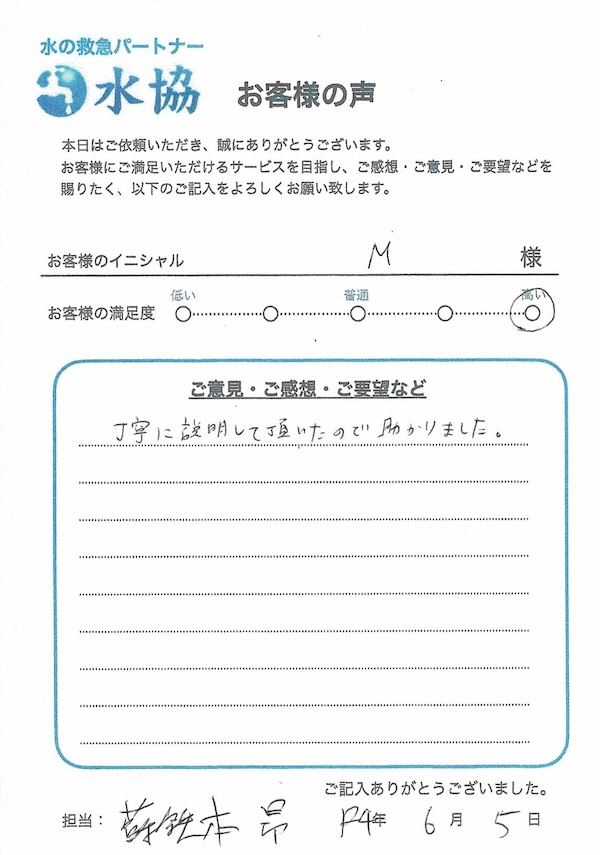 水の救急パートナー
水協 お客様の声
本日はご依頼いただき、誠にありがとうございます。
お客様にご満足いただけるサービスを目指し、ご感想・ご意見・ご要望などを
賜りたく、以下のご記入をよろしくお願い致します。
お客様のイニシャル M 様
低い 普通 高い
お客様の満足度
ご意見・ご感想・ご要望など
丁寧に説明して頂いたので助かりました。
ご記入ありがとうございました。
担当： 本 昴 R4年 6月 5日